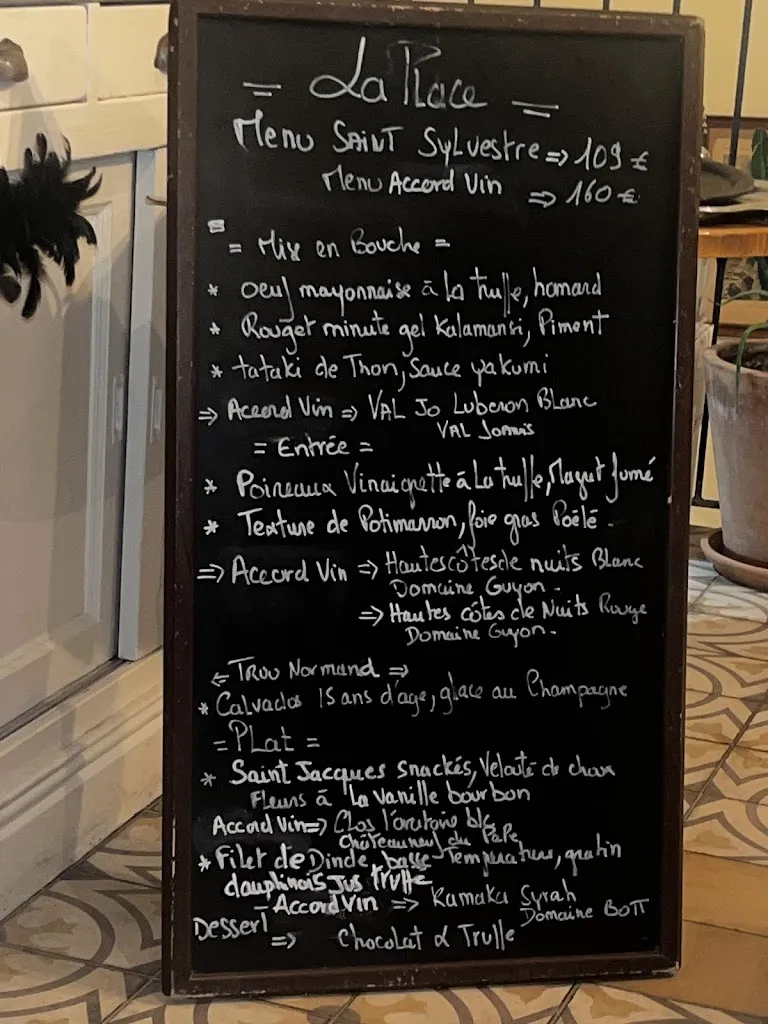 = La Place =
Menu SAINT Sylvestre => 109 €
Menu Accord Vin => 160 €
= Mise en Bouche =
* oeuf mayonnaise à la truffe, homard
* Rouget minute gel Kalamansi, Piment
* tataki de Thon, Sauce yakumi
=> Accord Vin => VAL Jo Luberon Blanc
VAL Joanis
= Entrée =
* Poireaux Vinaigrette à La truffe, Magret fumé
* Texture de Potimarron, foie gras Poêlé.
=> Accord Vin => Hautes côtes de nuits Blanc
Domaine Guyon.
=> Hautes côtes de Nuits Rouge
Domaine Guyon.
<= Trou Normand =>
* Calvados 15 ans d'age, glace au Champagne
= PLat =
* Saint Jacques snackés, Velouté de choux
Fleurs à la vanille bourbon
Accord Vin => Clos l'oratoire blc
Châteauneuf du Pape
* Filet de Dinde, basse Temperature, gratin
dauphinois Jus truffe
- Accord Vin => Kamaka Syrah
Domaine BOTT
Dessert
=> Chocolat & Truffe